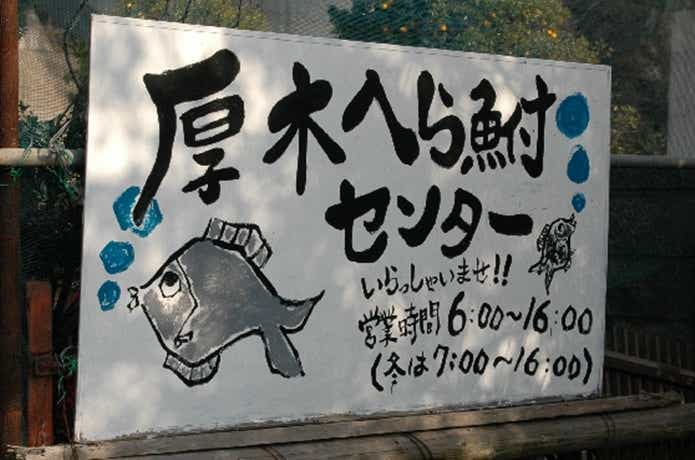 厚木へら鮒
センター
いらっしゃいませ!!
営業時間 6:00〜16:00
(冬は7:00〜16:00)